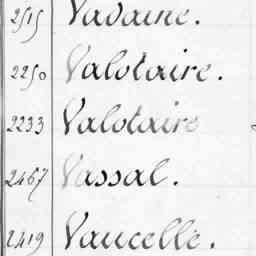 2515 Vadaine.
2250 Valotaire.
2233 Valotaire
2467 Vassal.
2419 Vaucelle.